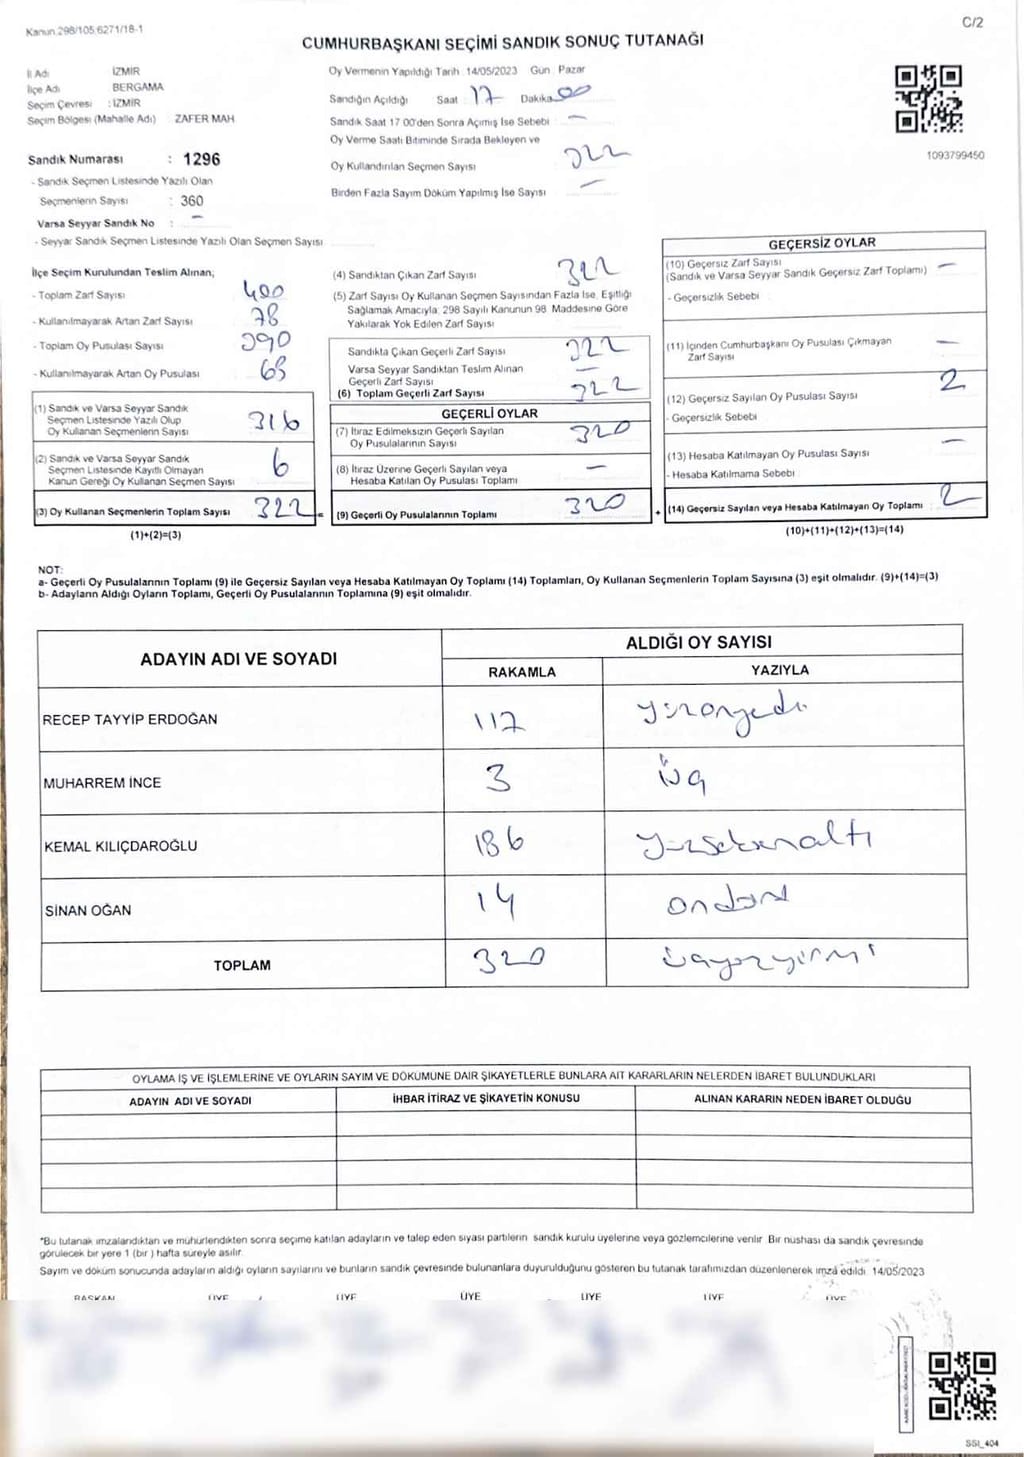 Kanun:298/105:6271/18-1
C/2
CUMHURBAŞKANI SEÇİMİ SANDIK SONUÇ TUTANAĞI
İl Adı : İZMİR
İlçe Adı : BERGAMA
Seçim Çevresi : İZMİR
Seçim Bölgesi (Mahalle Adı) : ZAFER MAH.
Sandık Numarası : 1296
- Sandık Seçmen Listesinde Yazılı Olan
Seçmenlerin Sayısı : 360
Varsa Seyyar Sandık No : -
- Seyyar Sandık Seçmen Listesinde Yazılı Olan Seçmen Sayısı
Oy Vermenin Yapıldığı Tarih : 14/05/2023 Gün : Pazar
Sandığın Açıldığı Saat : 17 Dakika : 00
Sandık Saat 17:00'den Sonra Açımış İse Sebebi : -
Oy Verme Saati Bitiminde Sırada Bekleyen ve
Oy Kullandırılan Seçmen Sayısı 322
Birden Fazla Sayım Döküm Yapılmış İse Sayısı -
1093799450
İlçe Seçim Kurulundan Teslim Alınan;
- Toplam Zarf Sayısı 400
- Kullanılmayarak Artan Zarf Sayısı 78
- Toplam Oy Pusulası Sayısı 390
- Kullanılmayarak Artan Oy Pusulası 68
(1) Sandık ve Varsa Seyyar Sandık
Seçmen Listesinde Yazılı Olup
Oy Kullanan Seçmenlerin Sayısı 316
(2) Sandık ve Varsa Seyyar Sandık
Seçmen Listesinde Kayıtlı Olmayan
Kanun Gereği Oy Kullanan Seçmen Sayısı 6
(3) Oy Kullanan Seçmenlerin Toplam Sayısı 322 =
(1)+(2)=(3)
(4) Sandıktan Çıkan Zarf Sayısı 322
(5) Zarf Sayısı Oy Kullanan Seçmen Sayısından Fazla İse, Eşitliği
Sağlamak Amacıyla, 298 Sayılı Kanunun 98. Maddesine Göre
Yakılarak Yok Edilen Zarf Sayısı
Sandıkta Çıkan Geçerli Zarf Sayısı 322
Varsa Seyyar Sandıktan Teslim Alınan
Geçerli Zarf Sayısı -
(6) Toplam Geçerli Zarf Sayısı 322
GEÇERLİ OYLAR
(7) İtiraz Edilmeksizin Geçerli Sayılan
Oy Pusulalarının Sayısı 320
(8) İtiraz Üzerine Geçerli Sayılan veya
Hesaba Katılan Oy Pusulası Toplamı -
(9) Geçerli Oy Pusulalarının Toplamı 320 +
GEÇERSİZ OYLAR
(10) Geçersiz Zarf Sayısı -
(Sandık ve Varsa Seyyar Sandık Geçersiz Zarf Toplamı)
- Geçersizlik Sebebi
(11) İçinden Cumhurbaşkanı Oy Pusulası Çıkmayan
Zarf Sayısı -
(12) Geçersiz Sayılan Oy Pusulası Sayısı 2
- Geçersizlik Sebebi
(13) Hesaba Katılmayan Oy Pusulası Sayısı -
- Hesaba Katılmama Sebebi
(14) Geçersiz Sayılan veya Hesaba Katılmayan Oy Toplamı 2
(10)+(11)+(12)+(13)=(14)
NOT:
a- Geçerli Oy Pusulalarının Toplamı (9) ile Geçersiz Sayılan veya Hesaba Katılmayan Oy Toplamı (14) Toplamları, Oy Kullanan Seçmenlerin Toplam Sayısına (3) eşit olmalıdır. (9)+(14)=(3)
b- Adayların Aldığı Oyların Toplamı, Geçerli Oy Pusulalarının Toplamına (9) eşit olmalıdır.
ADAYIN ADI VE SOYADI
ALDIĞI OY SAYISI
RAKAMLA YAZIYLA
RECEP TAYYİP ERDOĞAN 117 yüzonyedi
MUHARREM İNCE 3 üç
KEMAL KILIÇDAROĞLU 186 yüzseksenaltı
SİNAN OĞAN 14 ondört
TOPLAM 320 üçyüzyirmi
OYLAMA İŞ VE İŞLEMLERİNE VE OYLARIN SAYIM VE DÖKÜMÜNE DAİR ŞİKAYETLERLE BUNLARA AİT KARARLARIN NELERDEN İBARET BULUNDUKLARI
ADAYIN ADI VE SOYADI İHBAR İTİRAZ VE ŞİKAYETİN KONUSU ALINAN KARARIN NEDEN İBARET OLDUĞU
*Bu tutanak imzalandıktan ve mühürlendikten sonra seçime katılan adayların ve talep eden siyasi partilerin sandık kurulu üyelerine veya gözlemcilerine verilir. Bir nüshası da sandık çevresinde
görülecek bir yere 1 (bir ) hafta süreyle asılır.
Sayım ve döküm sonucunda adayların aldığı oyların sayılarını ve bunların sandık çevresinde bulunanlara duyurulduğunu gösteren bu tutanak tarafımızdan düzenlenerek imza edildi. 14/05/2023
BAŞKAN ÜYE ÜYE ÜYE ÜYE ÜYE ÜYE
SSI_404